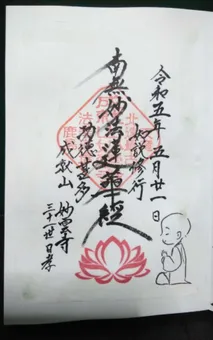 令和五年五月廿一日
如説修行
南無妙法蓮華経
功徳甚多
成就山 妙雲寺
三十一世日孝